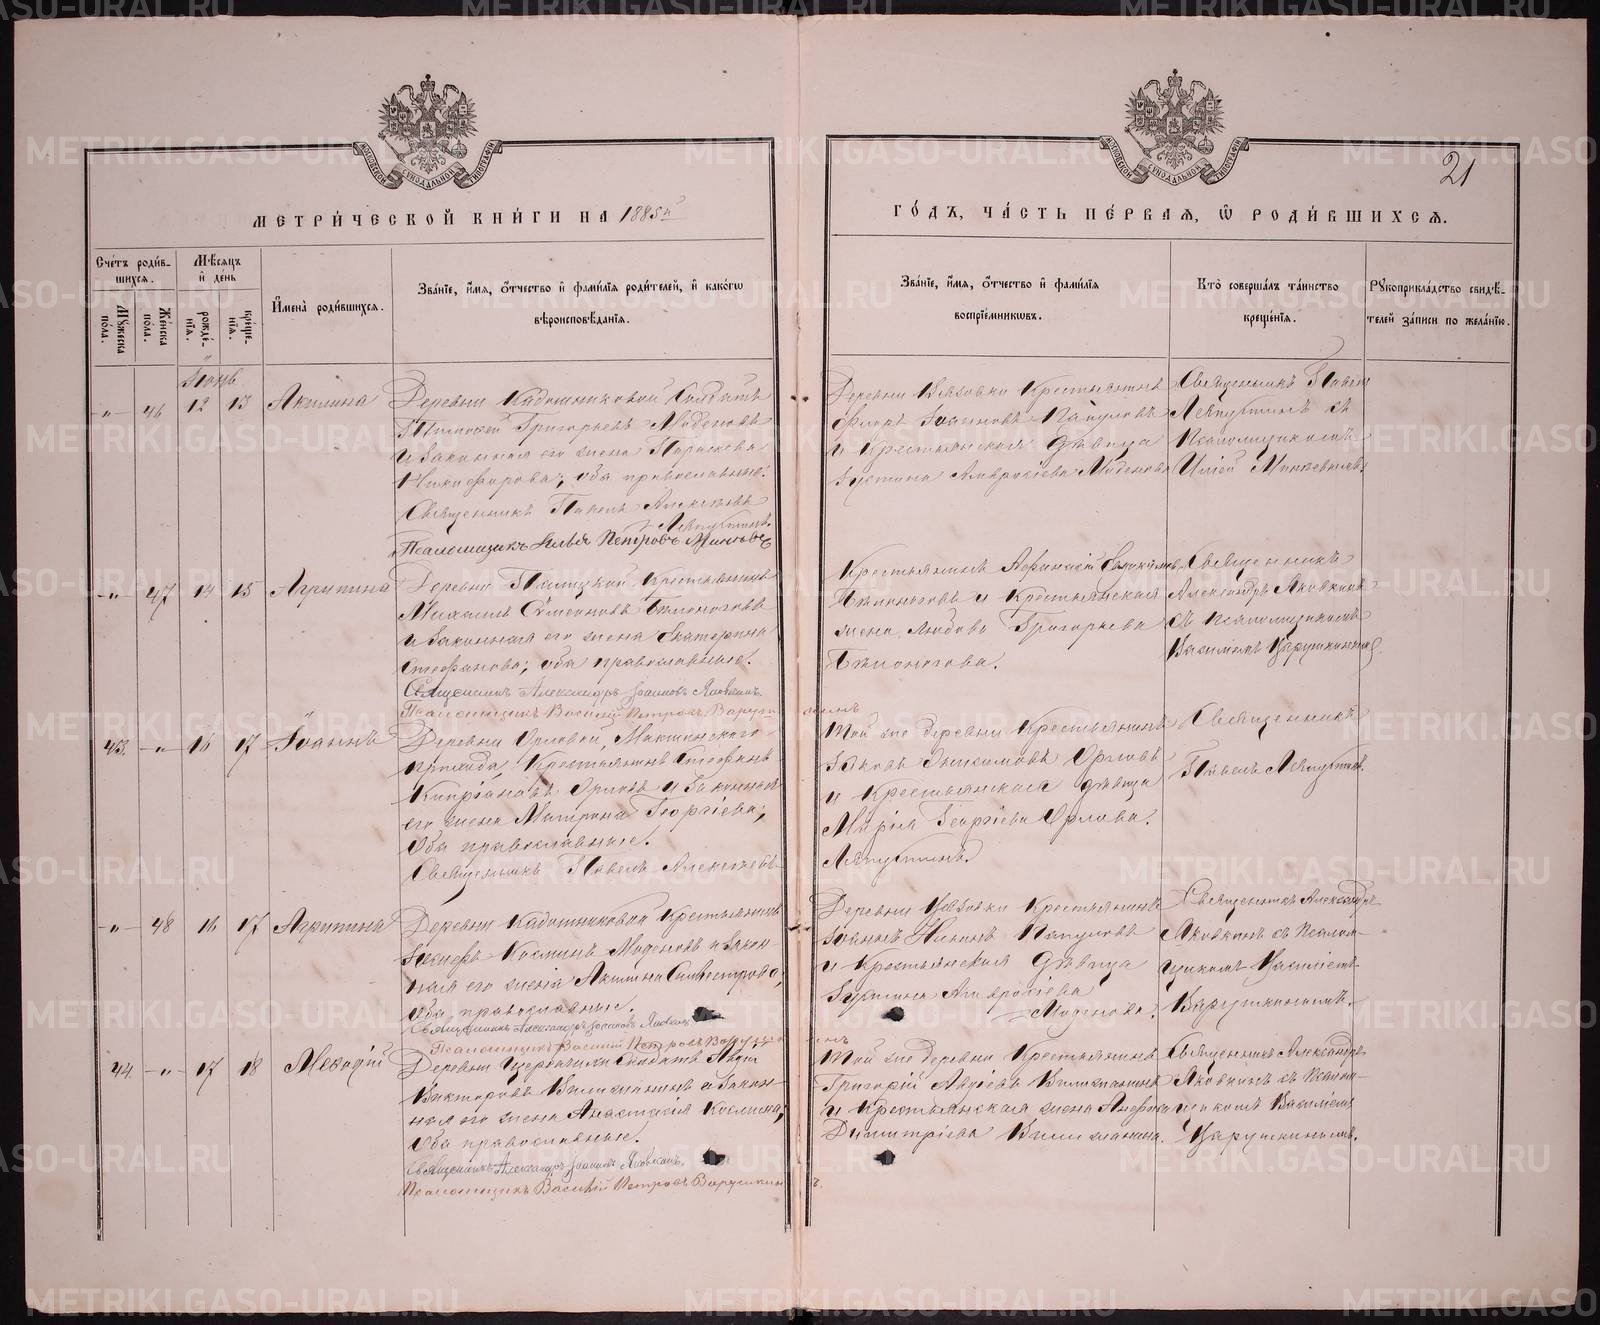 МЕТРИ́ЧЕСКОЙ КНИ́ГИ НА 1885й
ГО́ДЪ, ЧА́СТЬ ПЕ́РВАЯ, Ѡ РОДИ́ВШИХСЯ.
21
МОСКОВСКОЙ СУНОДАЛЬНОЙ ТИПОГРАФІИ
МОСКОВСКОЙ СУНОДАЛЬНОЙ ТИПОГРАФІИ
Сче́тъ роди́в-
шихся.
Мужеска пола.
Же́нска пола.
Мѣ́сяцъ
и҆ де́нь
рожде́-
нїя.
креще-
нїя.
И҆мена̀ роди́вшихся.
Зва́нїе, и҆́мя, ѻ҆́тчество и҆ фами́лїя роди́телей, и҆ како́гѡ
вѣроисповѣ́данїя.
Зва́нїе, и҆́мя, ѻ҆́тчество и҆ фами́лїя
воспрїе́мникѡвъ.
Кто̀ соверша́лъ та́инство
креще́нїя.
Рꙋкоприкла́дство свидѣ́-
телей за́писи по жела́нїю.
Іюнь
-"- 46 12 13 Акилина
Деревни Кадошниковой Солдатъ
Тимофей Григорьевъ Моденовъ
и законная его жена Параскева
Никифорова; оба православные.
Священникъ Павелъ Алексѣевъ
Ляпустинъ.
Псаломщикъ Илья Петровъ
Деревни Вязовки Крестьянинъ
Флоръ Іоанновъ Папуловъ
и крестьянская дѣвица
Іустина Амвросіева Моденова
Священникъ Павелъ
Ляпустинъ съ
Псаломщикомъ
Иліей
-"- 47 14 15 Агрипина
Деревни Крестьянинъ
Михаилъ Симеоновъ Бѣлоноговъ
и законная его жена Екатерина
Стефанова; оба православные.
Священникъ Александръ Іоанновъ Яковкинъ
Псаломщикъ Василій Петровъ Варуш-
кинъ
Крестьянинъ Афанасій
Бѣлоноговъ и Крестьянская
жена Любовь Григорьева
Бѣлоногова.
Священникъ
Александръ Яковкинъ
съ псаломщикомъ
Василіемъ Варушкинымъ.
43. -"- 16 17 Іоаннъ
Деревни Орловой,
прихода, Крестьянинъ Стефанъ
Кипріановъ Орловъ и законная
его жена Матрона Георгіева;
оба православные.
Священникъ Павелъ Алексѣевъ
Той же деревни Крестьянинъ
Іаковъ Орловъ
и Крестьянская дѣвица
Марія Георгіева Орлова.
Ляпустинъ.
Священникъ
Павелъ Ляпустинъ.
-"- 48 16 17 Агрипина
Деревни Кадошниковой Крестьянинъ
Іосифъ Косминъ Моденовъ и закон-
ная его жена Акилина Сильвестрова;
оба православные.
Священникъ Александръ Іоанновъ Яковкинъ
Псаломщикъ Василій Петровъ Варушкинъ
Деревни Вязовки Крестьянинъ
Іоаннъ Папуловъ
и Крестьянская дѣвица
Іустина Амвросіева
Моденова.
Священникъ Александръ
Яковкинъ съ Псалом-
щикомъ Василіемъ
Варушкинымъ.
44. -"- 17 18 Меѳодій
Деревни Щербачихи Солдатъ Авдій
Викторовъ Вилисианинъ и закон-
ная его жена Анастасія Космина;
оба православные.
Священникъ Александръ Іоанновъ Яковкинъ
Псаломщикъ Василій Петровъ Варушкинъ.
Той же деревни Крестьянинъ
Григорій Авдіевъ
и крестьянская жена
Димитріева
Священникъ Александръ
Яковкинъ съ Псалом-
щикомъ Василіемъ
Варушкинымъ.